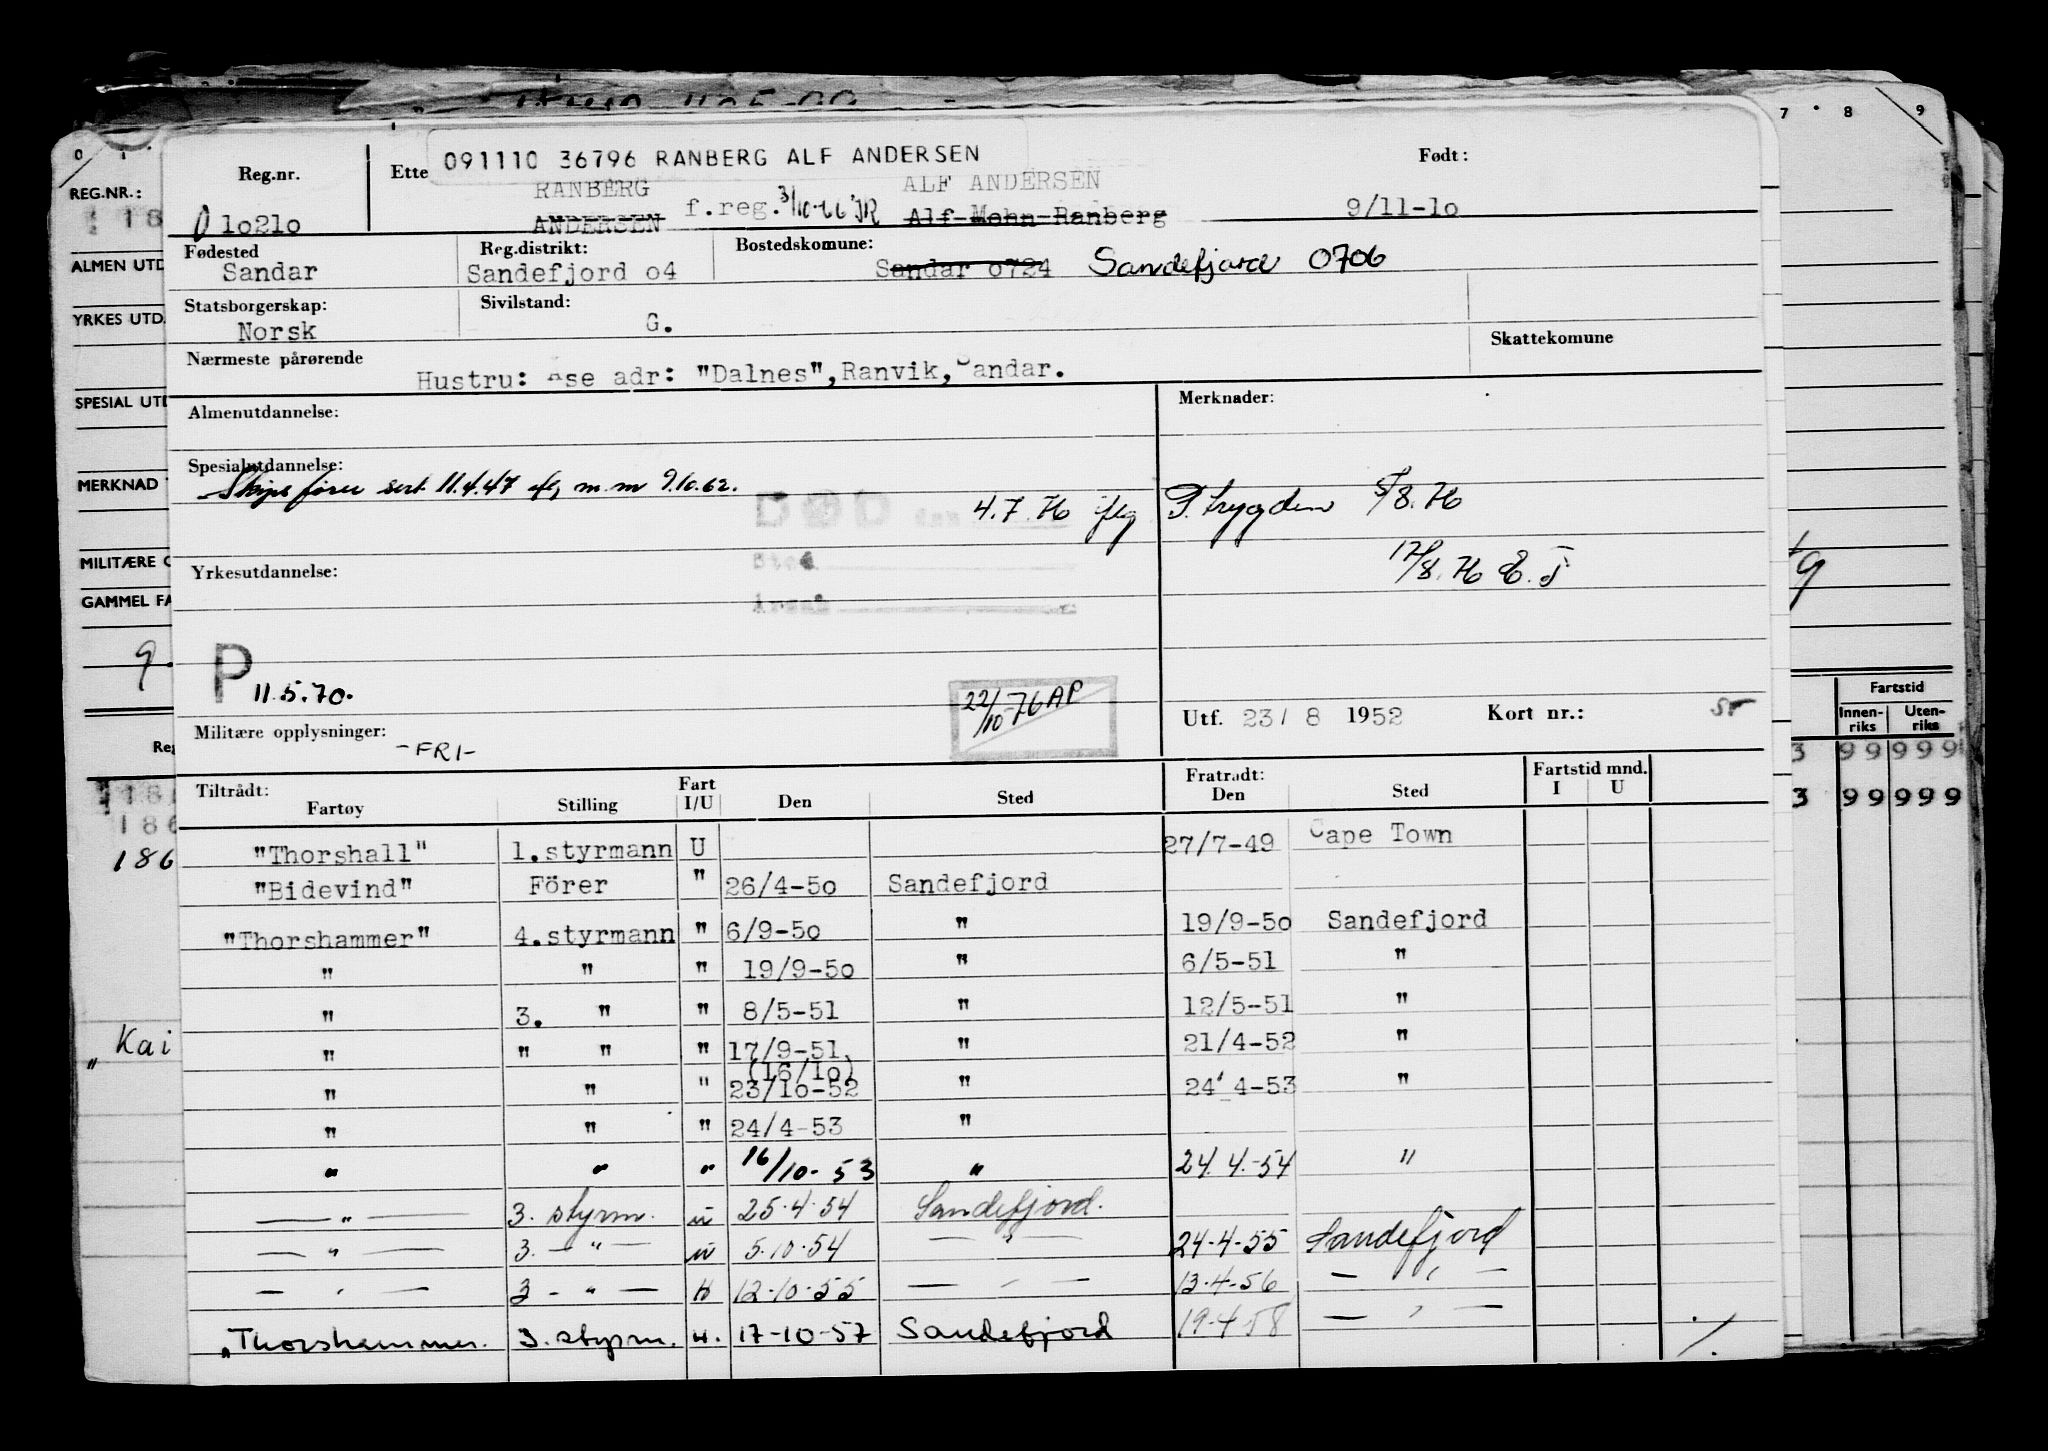 0 1 7 8 9
REG.NR.:
ALMEN UTD
YRKES UTD.
SPESIAL UTD
MERKNAD
MILITÆRE
GAMMEL FA
9.
Reg
186
186
" Kai
Reg.nr.
Ette
091110 36796 RANBERG ALF ANDERSEN
Født:
RANBERG ALF ANDERSEN
0 1o21o ANDERSEN f.reg. 3/10-66 JR Alf Mohn Ranberg 9/11-1o
Fødested Reg.distrikt: Bostedskomune:
Sandar Sandefjord o4 Sandar o724 Sandefjord 0706
Statsborgerskap: Sivilstand:
Norsk G.
Nærmeste pårørende Skattekomune
Hustru: Åse adr: "Dalnes",Ranvik,Sandar.
Almenutdannelse: Merknader:
Spesialutdannelse:
Skipsfører sert. 11.4.47 m.m 9.10.62.
DØD den 4.7.76 iflg P.trygden 5/8.76
Sted
17/8.76
Yrkesutdannelse:
Årsak
P 11.5.70.
22/10-76 AP
Utf. 23/ 8 1952 Kort nr.:
Militære opplysninger: -FRI-
Tiltrådt: Fart Fratrådt: Fartstid mnd.
Fartøy Stilling I/U Den Sted Den Sted I U
"Thorshall" 1.styrmann U 27/7-49 Cape Town
"Bidevind" Förer " 26/4-5o Sandefjord
"Thorshammer" 4.styrmann " 6/9-5o " 19/9-5o Sandefjord
" " " 19/9-5o " 6/5-51 "
" 3. " " 8/5-51 " 12/5-51 "
" " " " 17/9-51 " 21/4-52 "
(16/1o)
" " " 23/1o-52 " 24 4-53 "
" " " 24/4-53 "
" " " 16/10-53 " 24.4.-54 "
— " — 3. styrm. u 25.4.54 Sandefjord.
— " — 3. — " — u 5.10.54 — " — 24.4.55 Sandefjord
— " — 3 — " — 12.10.55 — " — 13.4.56 — " —
"Thorshammer. 3. styrm. u. 17-10-57 Sandefjord 19.4.58 — " —
./.
Fartstid
Innen-riks Uten-riks
3 99 999
3 99 999